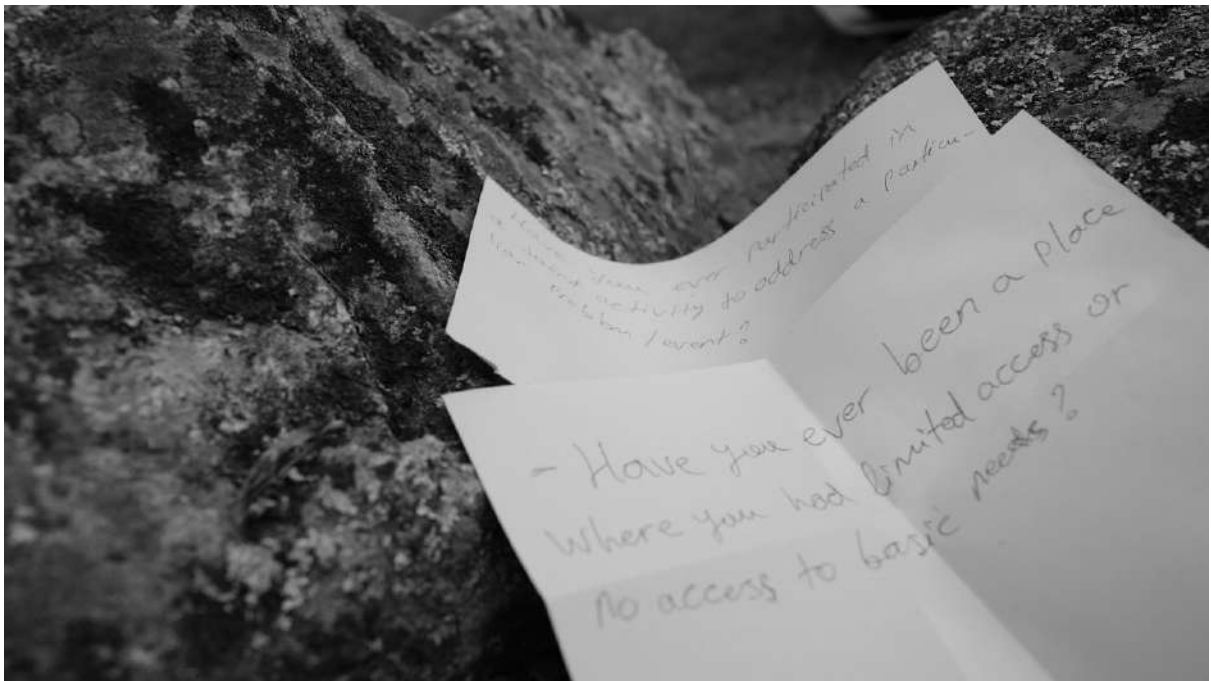 - Have you ever participated in
activity to address a particu-
lar problem / event?
- Have you ever been a place
where you had limited access or
no access to basic needs?